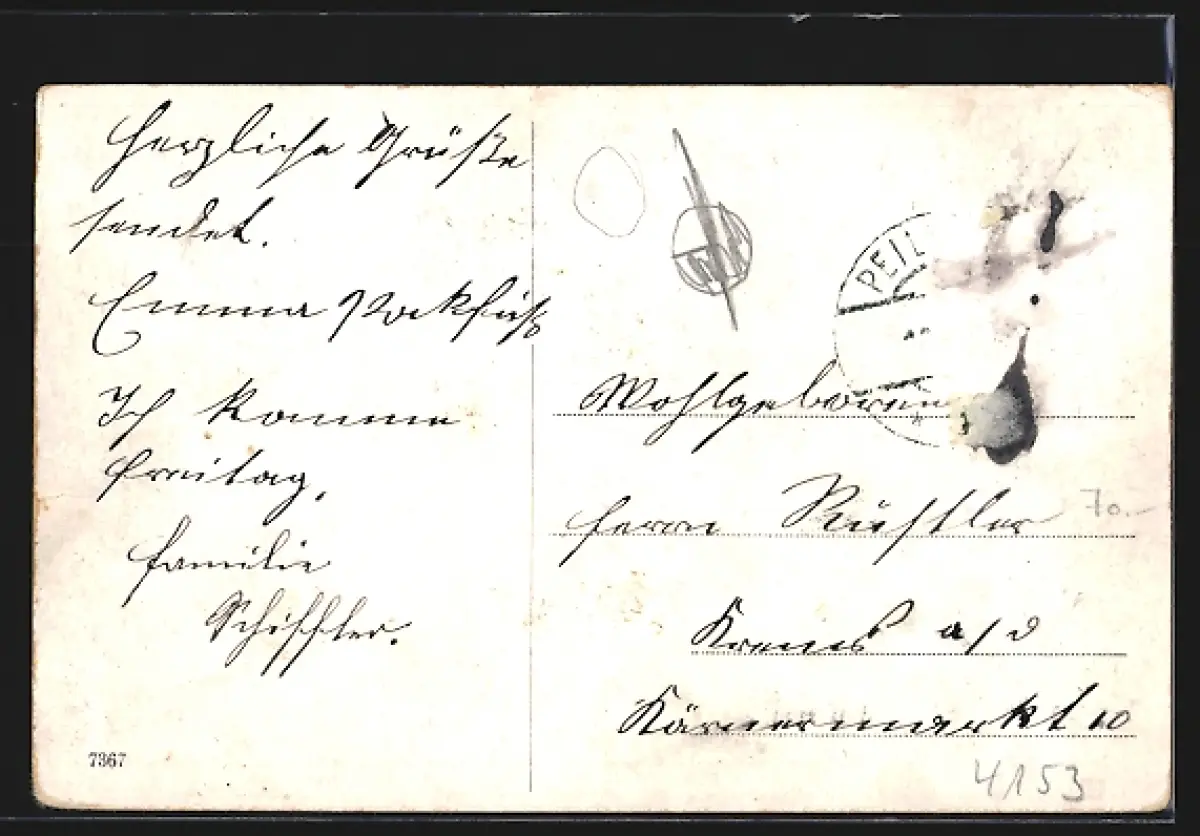 Herzliche Grüße
sendet.
Emma
Ich komme
Freitag,
Familie
Schiffler.
7367
PEIL
Wohlgeboren
Herrn
Krems a/d
Körnermarkt 10
70.-
4153